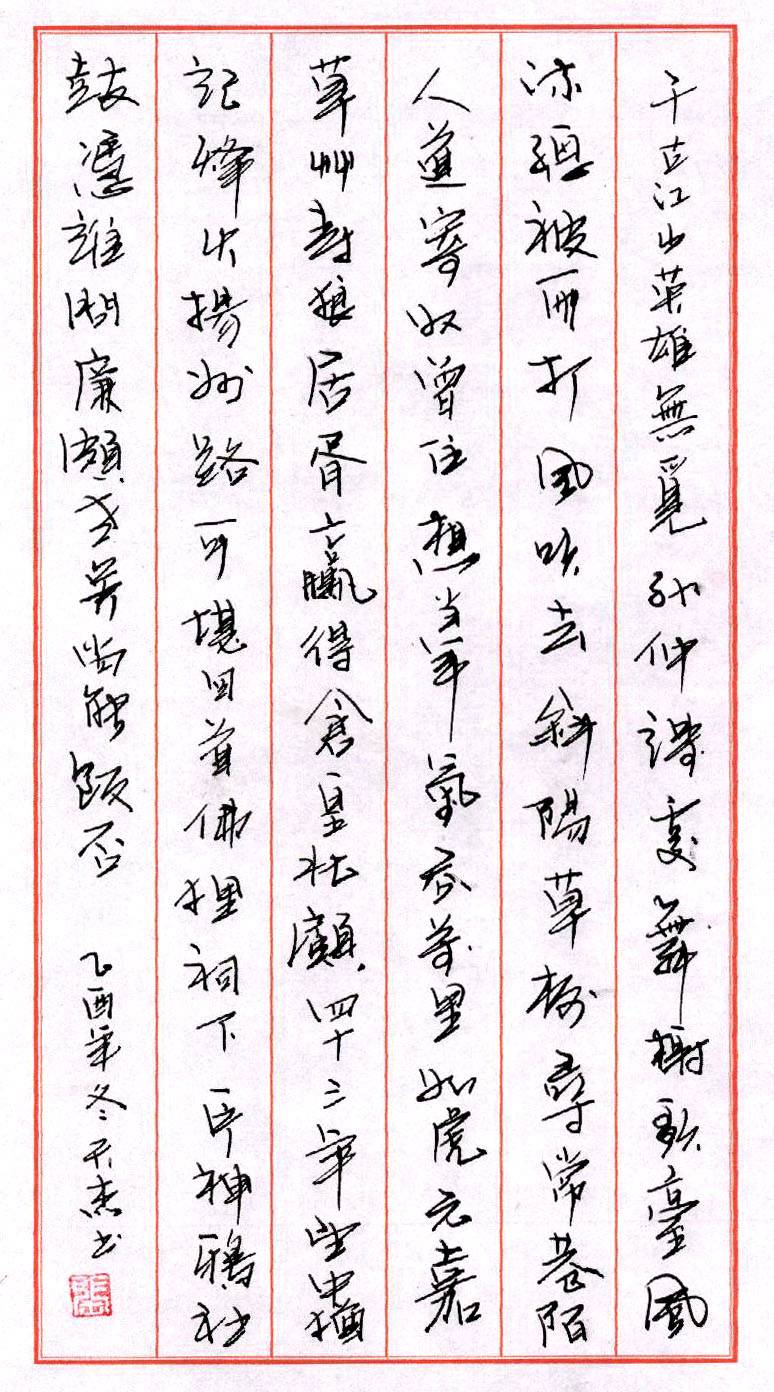 千古江山英雄無覓孫仲謀處舞榭歌臺風
流總被雨打風吹去斜陽草樹尋常巷陌
人道寄奴曾住想當年氣吞萬里如虎元嘉
草草封狼居胥贏得倉皇北顧四十三年望中猶
記烽火揚州路可堪回首佛狸祠下一片神鴉社
鼓憑誰問廉頗老矣尚能飯否 乙酉年冬天杰书